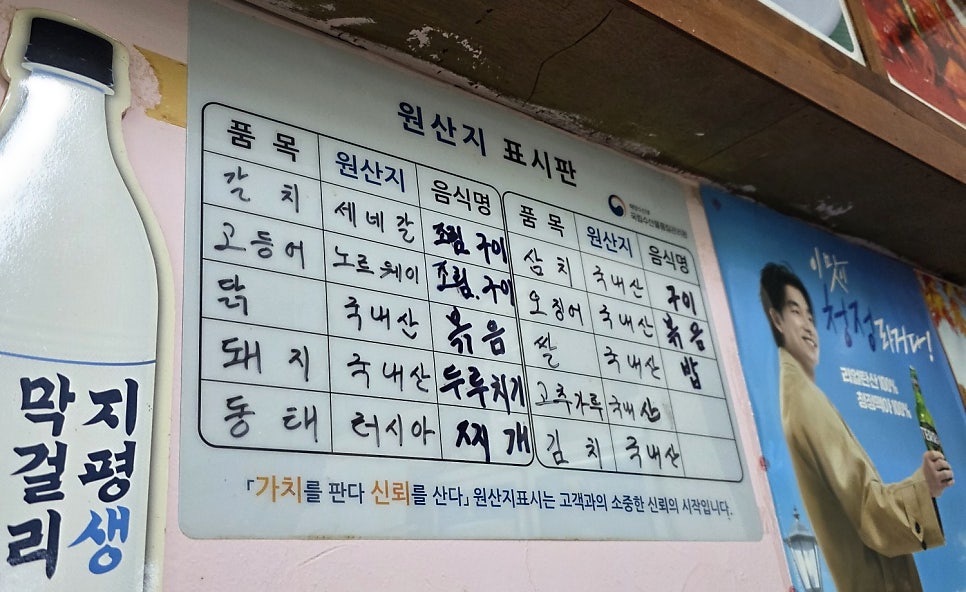 지평생
막걸리
원산지 표시판
품목 원산지 음식명
갈치 세네갈 조림. 구이
고등어 노르웨이 조림. 구이
닭 국내산 볶음
돼지 국내산 두루치기
동태 러시아 찌개
해양수산부
국립수산물품질관리원
품목 원산지 음식명
삼치 국내산 구이
오징어 국내산 볶음
쌀 국내산 밥
고추가루 국내산
김치 국내산
「가치를 판다 신뢰를 산다」 원산지표시는 고객과의 소중한 신뢰의 시작입니다.
이 맛이
청정라거다!
리얼탄산 100%
청정맥아 100%